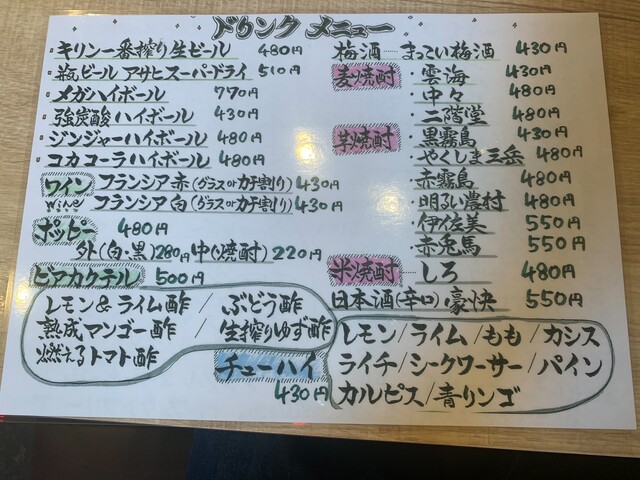 ドリンク メニュー
・キリン一番搾り生ビール 480円
・瓶ビール アサヒスーパードライ 510円
・メガハイボール 770円
・強炭酸ハイボール 430円
・ジンジャーハイボール 480円
・コカコーラハイボール 480円
ワイン フランシア赤(グラスorカチ割り)430円
Wine フランシア白(グラスorカチ割り)430円
ホッピー 480円
外(白、黒)280円 中(焼酎)220円
ビアカクテル 500円
レモン&ライム酢 / ぶどう酢
熟成マンゴー酢 / 生搾りゆず酢
燃えるトマト酢
チューハイ
430円
梅酒 まっこい梅酒 430円
麦焼酎 ・雲海 430円
・中々 480円
・二階堂 480円
芋焼酎 ・黒霧島 430円
・やくしま三岳 480円
・赤霧島 480円
・明るい農村 480円
・伊佐美 550円
・赤兎馬 550円
米焼酎 しろ 480円
日本酒(辛口)豪快 550円
レモン/ライム/もも/カシス
ライチ/シークワーサー/パイン
カルピス/青りんご